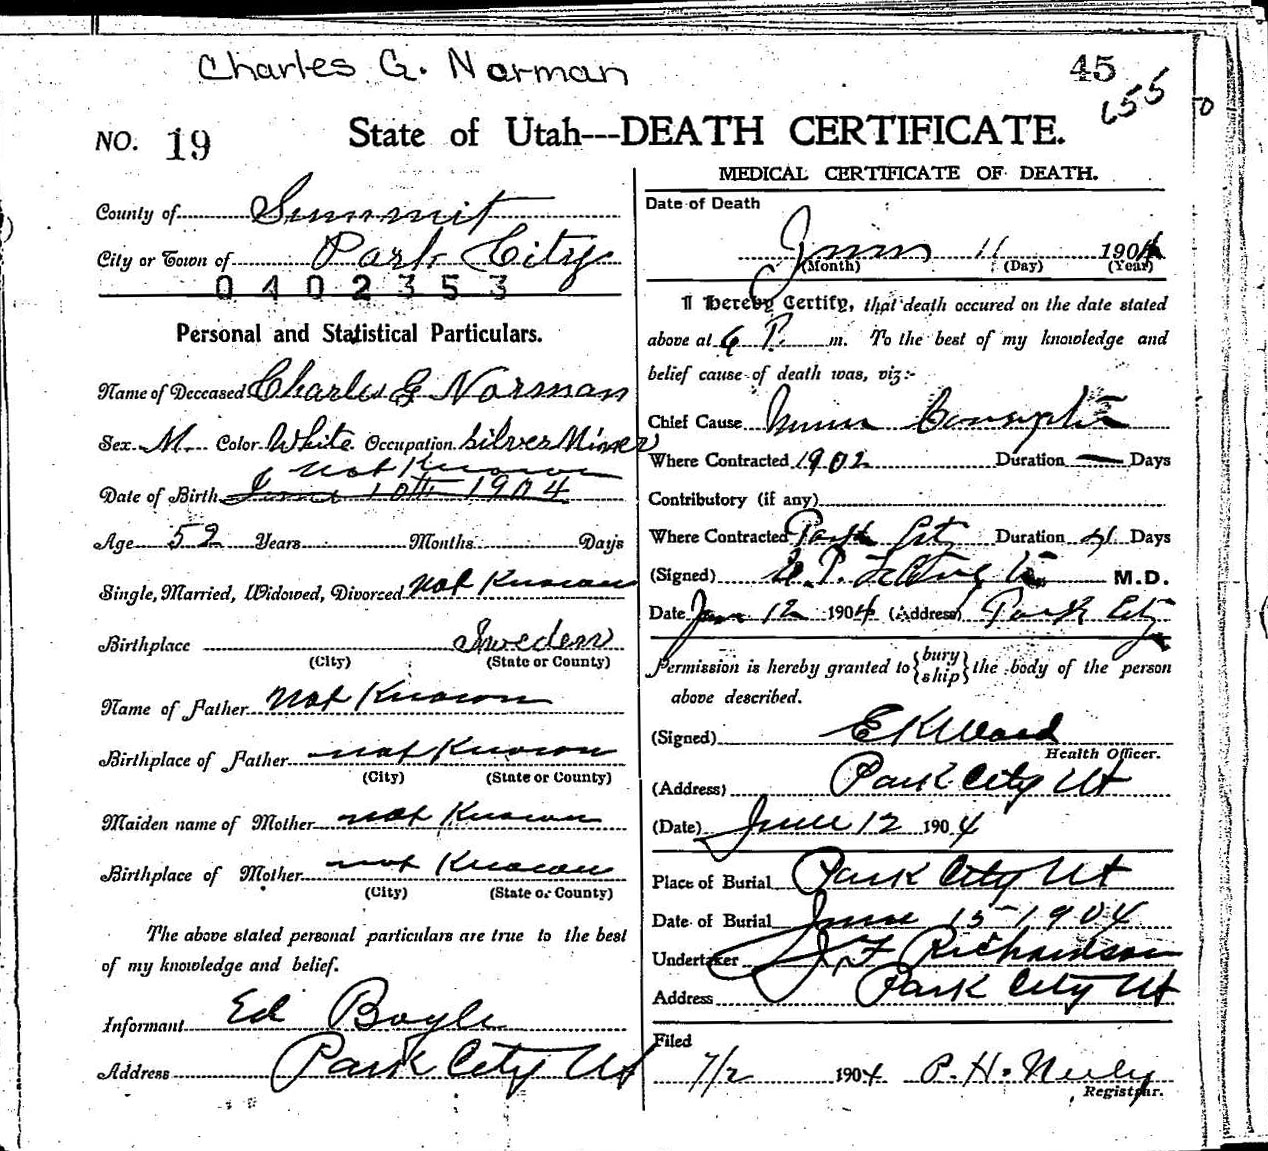 Charles G. Norman
45
655
NO. 19
State of Utah---DEATH CERTIFICATE.
County of Summit
City or Town of Park City
0402353
Personal and Statistical Particulars.
Name of Deceased Charles G Norman
Sex M. Color White Occupation Silver Miner
not Known
Date of Birth June 10th 1904
Age 52 Years Months Days
Single, Married, Widowed, Divorced not Known
Birthplace Sweden
(City) (State or County)
Name of Father not Known
Birthplace of Father not Known
(City) (State or County)
Maiden name of Mother not Known
Birthplace of Mother not Known
(City) (State or County)
The above stated personal particulars are true to the best
of my knowledge and belief.
Informant Ed Boyle
Address Park City Ut
MEDICAL CERTIFICATE OF DEATH.
Date of Death
June 11 1904
(Month) (Day) (Year)
I Hereby Certify, that death occured on the date stated
above at 6 P. m. To the best of my knowledge and
belief cause of death was, viz:-
Chief Cause
Where Contracted 1902 Duration — Days
Contributory (if any)
Where Contracted Park City Duration Days
(Signed) M.D.
Date June 12 1904 (Address) Park City
Permission is hereby granted to {bury ship} the body of the person
above described.
(Signed) E K Ward
Health Officer.
(Address) Park City Ut
(Date) June 12 1904
Place of Burial Park City Ut
Date of Burial June 15 1904
Undertaker J. F Richardson
Address Park City Ut
Filed
7/2 1904 P. H. Neeley
Registrar.